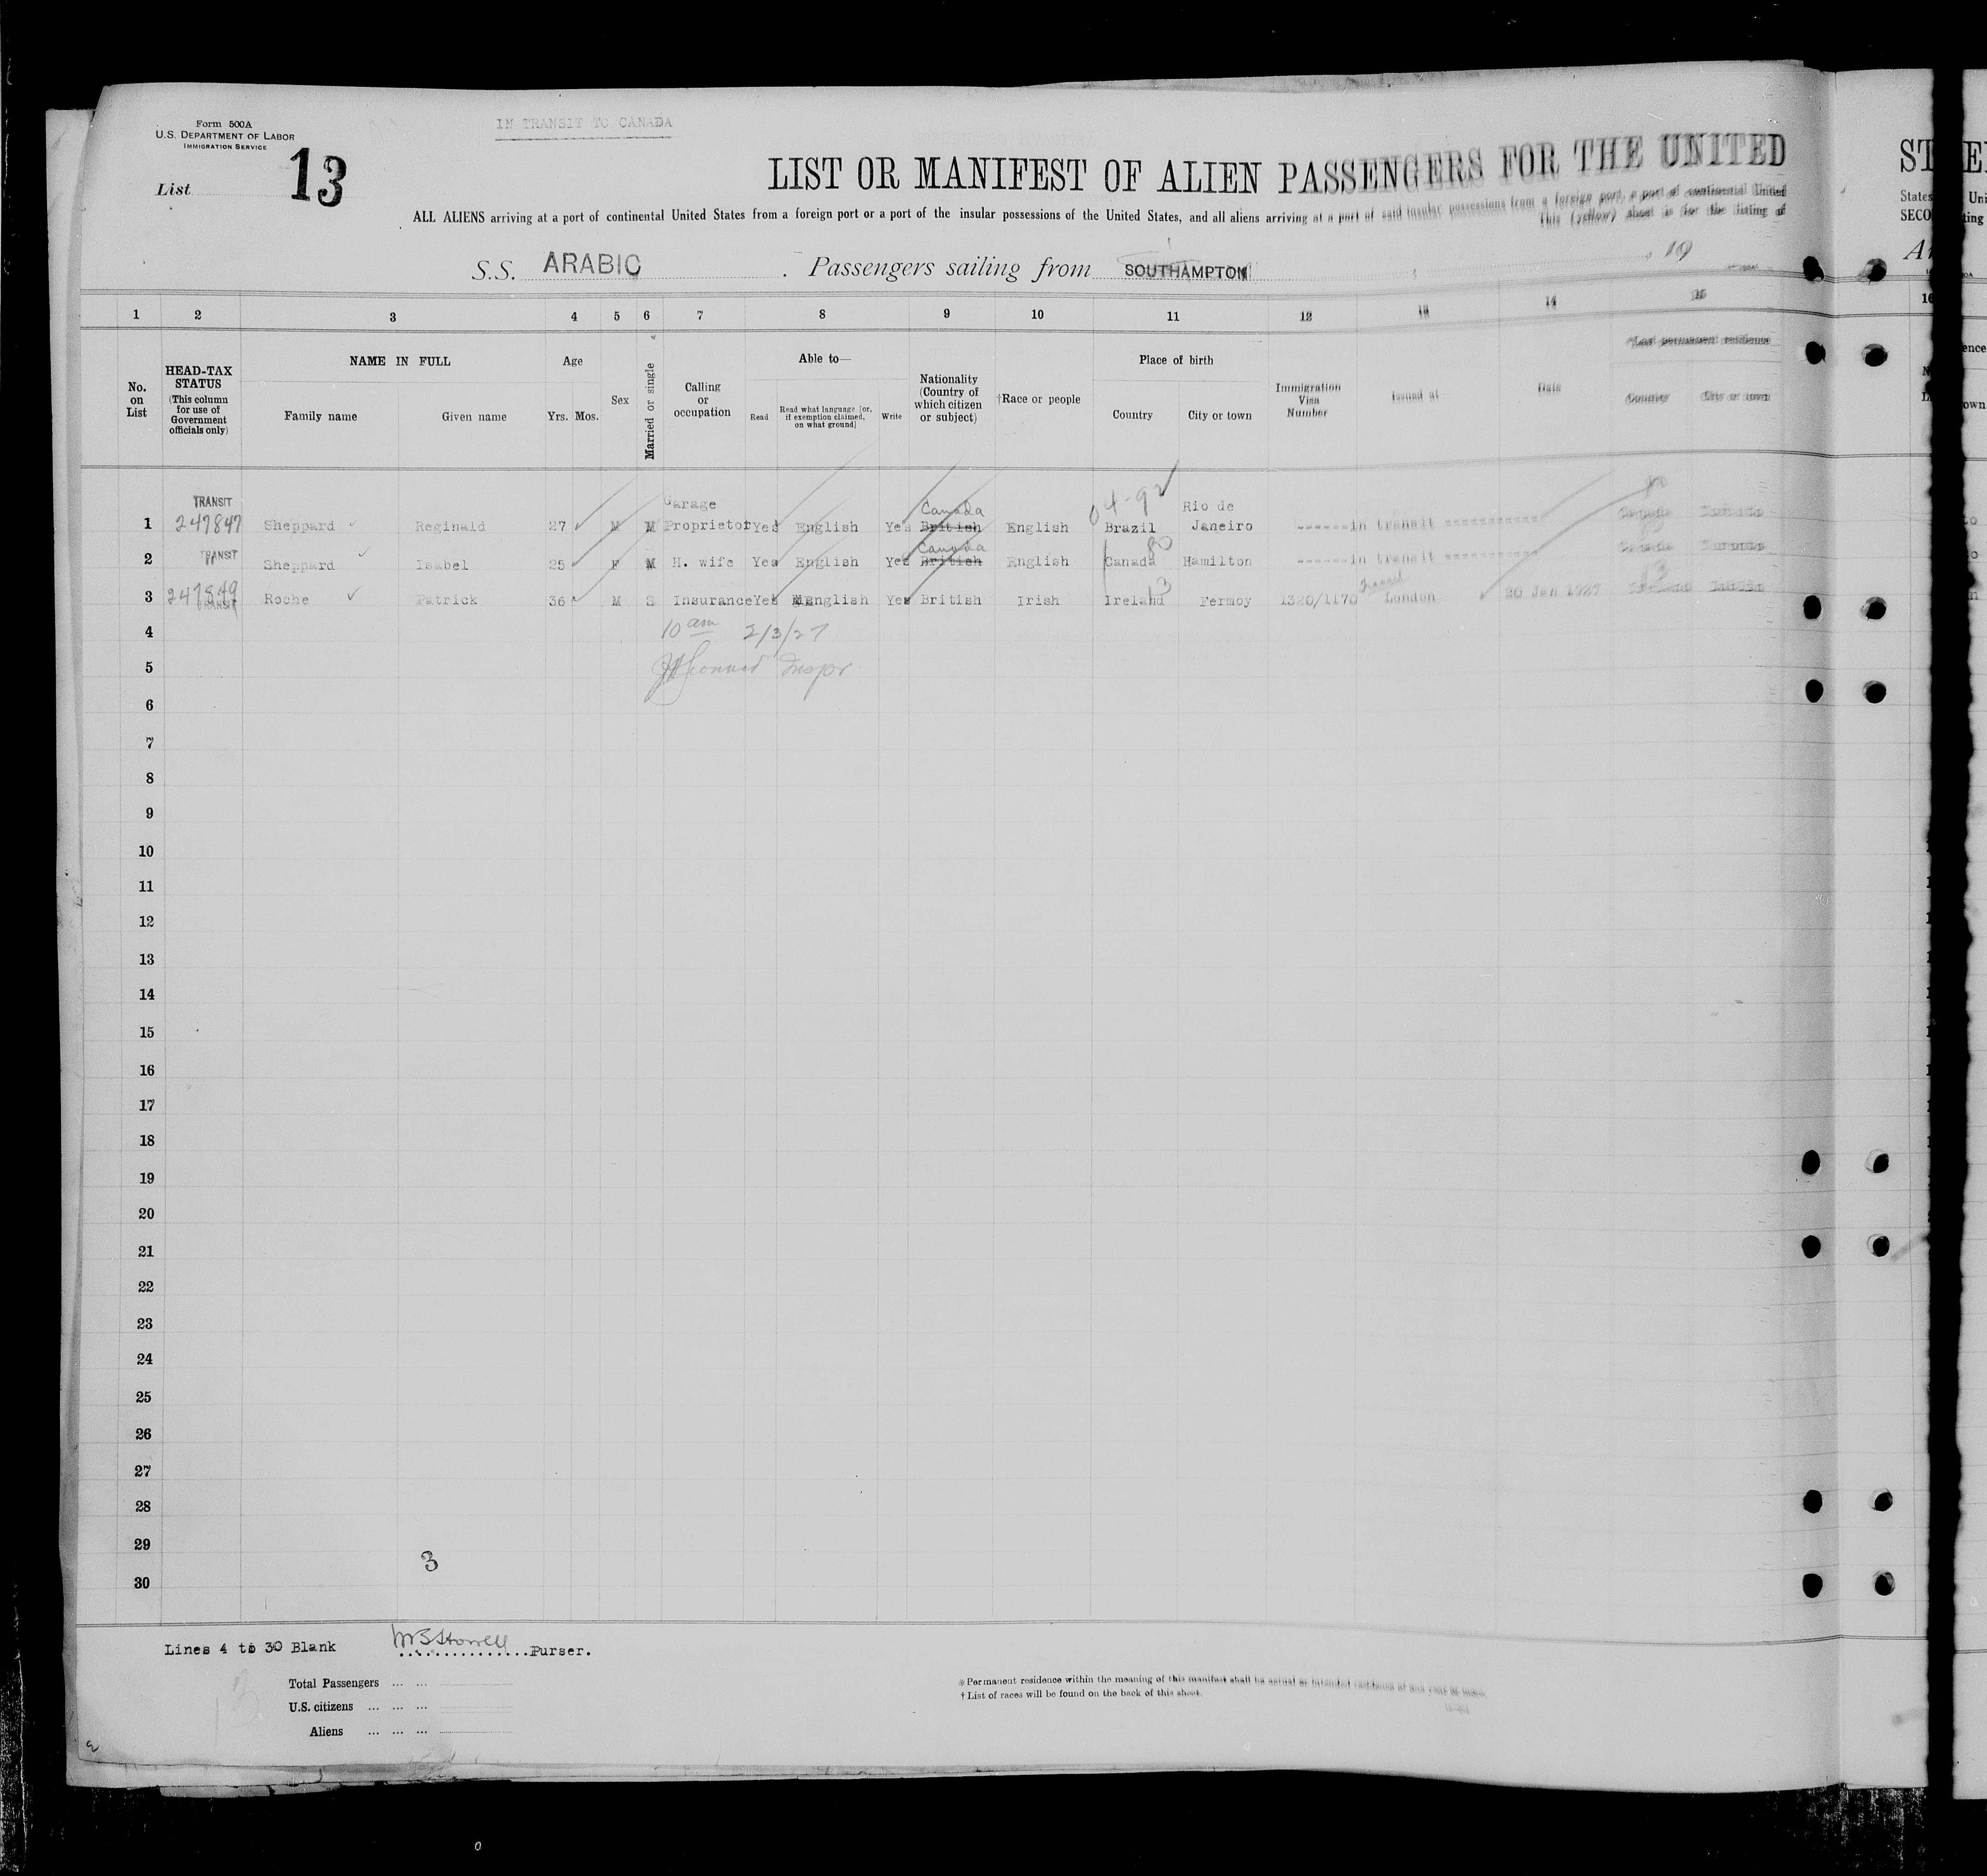 Form 500A
U.S. DEPARTMENT OF LABOR
IMMIGRATION SERVICE
IN TRANSIT TO CANADA
List 13
LIST OR MANIFEST OF ALIEN PASSENGERS FOR THE UNITED
ALL ALIENS arriving at a port of continental United States from a foreign port or a port of the insular possessions of the United States, and all aliens arriving at a port of said insular possessions from a foreign port, a port of continental United
This (yellow) sheet is for the listing of
S.S. ARABIC . Passengers sailing from SOUTHAMPTON , 19
1 2 3 4 5 6 7 8 9 10 11 12 13 14 15
No. on List
HEAD-TAX STATUS (This column for use of Government officials only)
NAME IN FULL
Family name Given name
Age
Yrs. Mos.
Sex
Married or single
Calling or occupation
Able to—
Read Read what language [or, if exemption claimed, on what ground] Write
Nationality (Country of which citizen or subject)
†Race or people
Place of birth
Country City or town
Immigration Visa Number
Issued at
Date
*Last permanent residence
Country City or town
1 TRANSIT 247847 Sheppard Reginald 27 M M Garage Proprietor Yes English Yes British Canada English 04-92 Brazil Rio de Janeiro ------in transit ------------ Canada Toronto
2 TRANSIT Sheppard Isabel 25 F M H. wife Yes English Yes British Canada English Canada 80 Hamilton ------in transit ------------ Canada Toronto
3 247849 TRANSIT Roche Patrick 36 M S Insurance Yes English Yes British Irish Ireland 13 Fermoy 1320/1170 Transit London 20 Jan 1927 13
4 10 am 2/3/27
5 Inspr.
6
7
8
9
10
11
12
13
14
15
16
17
18
19
20
21
22
23
24
25
26
27
28
29 3
30
Lines 4 to 30 Blank Purser.
Total Passengers ... ...
U.S. citizens ... ... ...
Aliens ... ... ...
13
* Permanent residence within the meaning of this manifest shall be actual or intended residence of one year or more.
† List of races will be found on the back of this sheet.